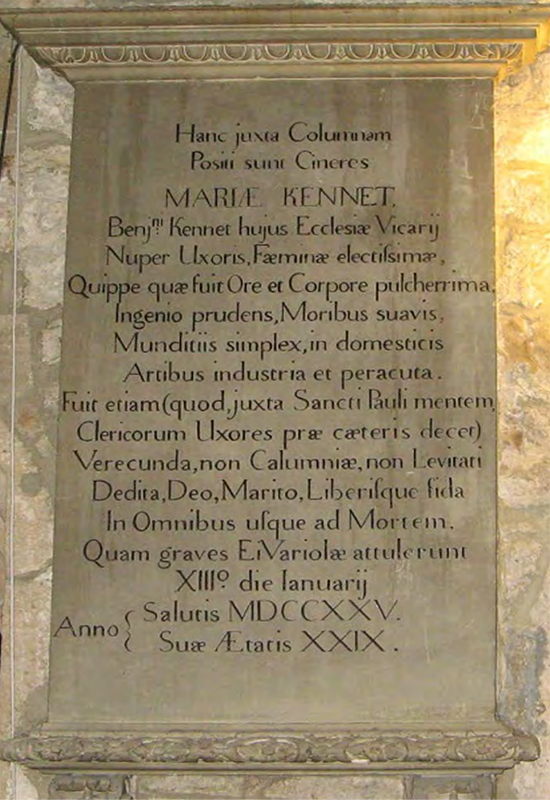 Hanc juxta Columnam
Positi sunt Cineres
MARIÆ KENNET,
Benjⁿⁱ Kennet hujus Ecclesiæ Vicarij
Nuper Uxoris, Fæminæ electiſsimæ,
Quippe quæ fuit Ore et Corpore pulcherrima,
Ingenio prudens, Moribus suavis,
Munditiis simplex, in domesticis
Artibus industria et peracuta.
Fuit etiam (quod, juxta Sancti Pauli mentem,
Clericorum Uxores præ cæteris decet)
Verecunda, non Calumniæ, non Levitati
Dedita, Deo, Marito, Liberiſque fida
In Omnibus uſque ad Mortem.
Quam graves Ei Variolæ attulerunt
XIIIº die Ianuarij
Anno { Salutis MDCCXXV.
Suæ Ætatis XXIX.